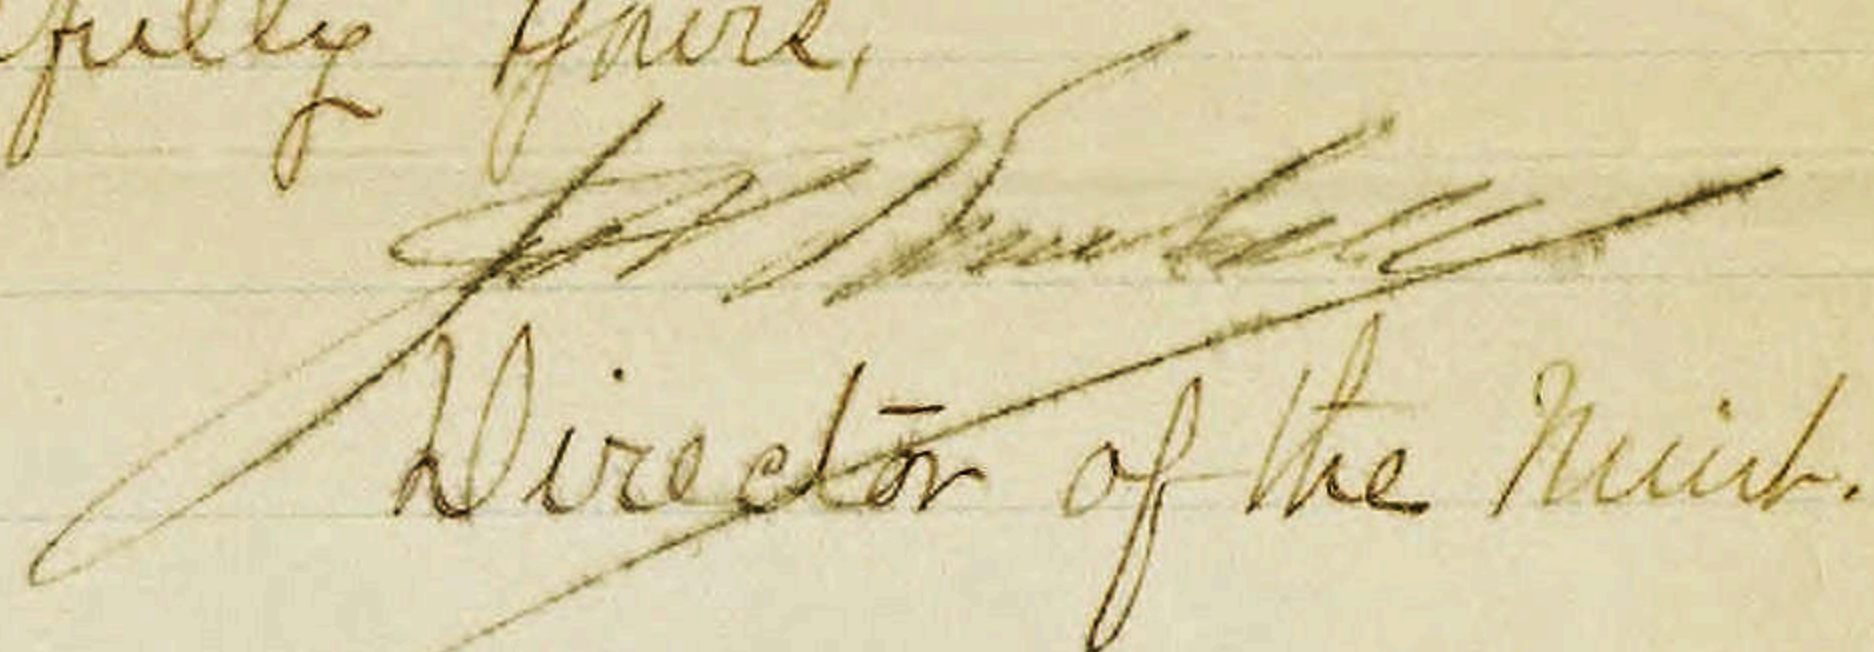 fully Yours,
Jas P Kimball
Director of the Mint.